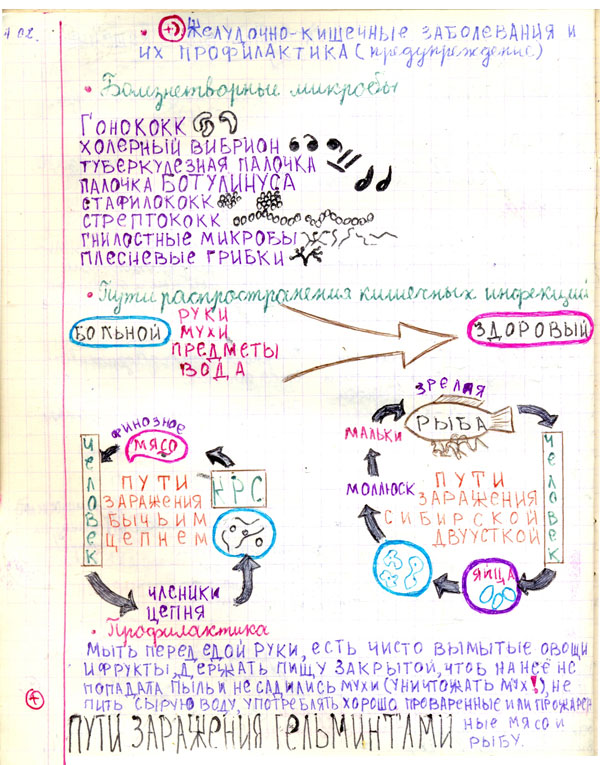 4.02.
• (+) Желудочно-кишечные заболевания и
их профилактика (предупреждение)
• Болезнетворные микробы
Гонококк
Холерный вибрион
Туберкулезная палочка
Палочка Ботулинуса
Стафилококк
Стрептококк
Гнилостные микробы
Плесневые грибки
• Пути распространения кишечных инфекций
БОЛЬНОЙ
РУКИ
МУХИ
ПРЕДМЕТЫ
ВОДА
ЗДОРОВЫЙ
ЧЕЛОВЕК
ФИНОЗНОЕ
МЯСО
КРС
ПУТИ
ЗАРАЖЕНИЯ
БЫЧЬИМ
ЦЕПНЕМ
ЧЛЕНИКИ
ЦЕПНЯ
ЗРЕЛАЯ
РЫБА
МАЛЬКИ
МОЛЛЮСК
ПУТИ
ЗАРАЖЕНИЯ
СИБИРСКОЙ
ДВУУСТКОЙ
ЧЕЛОВЕК
ЯЙЦА
• Профилактика
МЫТЬ ПЕРЕД ЕДОЙ РУКИ, ЕСТЬ ЧИСТО ВЫМЫТЫЕ ОВОЩИ
И ФРУКТЫ, ДЕРЖАТЬ ПИЩУ ЗАКРЫТОЙ, ЧТОБ НА НЕЁ НЕ
ПОПАДАЛА ПЫЛЬ И НЕ САДИЛИСЬ МУХИ (УНИЧТОЖАТЬ МУХ!), НЕ
ПИТЬ СЫРУЮ ВОДУ, УПОТРЕБЛЯТЬ ХОРОШО ПРОВАРЕННЫЕ ИЛИ ПРОЖАРЕН
НЫЕ МЯСО И
РЫБУ.
4
ПУТИ ЗАРАЖЕНИЯ ГЕЛЬМИНТАМИ